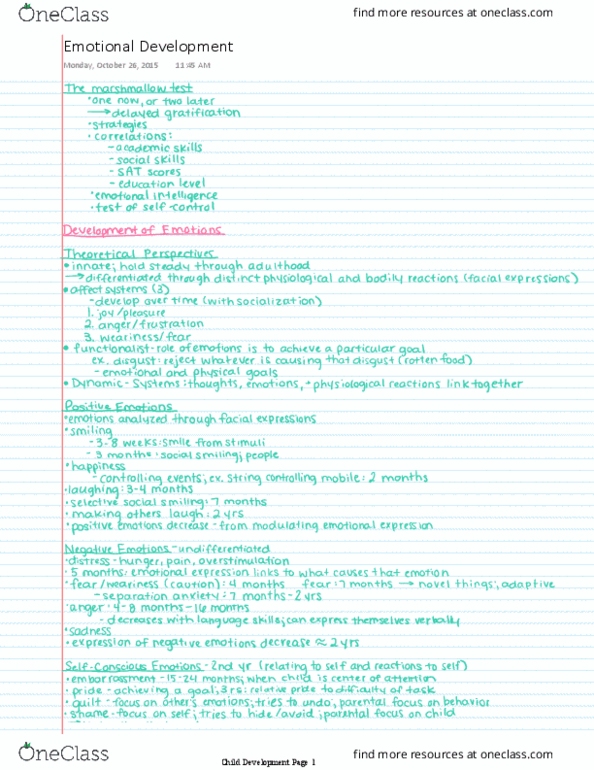 OneClass
find more resources at oneclass.com
Emotional Development
Monday, October 26, 2015 11:45 AM
The marshmallow test
• one now, or two later
→ delayed gratification
• strategies
• correlations:
- academic skills
- social skills
- SAT scores
- education level
• emotional intelligence
• test of self-control
Development of Emotions
Theoretical Perspectives
• innate; hold steady through adulthood
→ differentiated through distinct physiological and bodily reactions (facial expressions)
• affect systems (3)
- develop over time (with socialization)
1. joy/pleasure
2. anger/frustration
3. weariness/fear
• functionalist - role of emotions is to achieve a particular goal
ex. disgust: reject whatever is causing that disgust (rotten food)
- emotional and physical goals
• Dynamic - Systems: thoughts, emotions, + physiological reactions link together
Positive Emotions
• emotions analyzed through facial expressions
• smiling
- 3-8 weeks: smile from stimuli
- 3 months: social smiling; people
• happiness
- controlling events; ex. string controlling mobile: 2 months
• laughing: 3-4 months
• selective social smiling: 7 months
• making others laugh: 2 yrs
• positive emotions decrease - from modulating emotional expression
Negative Emotions - undifferentiated
• distress - hunger, pain, overstimulation
• 5 months: emotional expression links to what causes that emotion
• fear/weariness (caution): 4 months fear: 7 months → novel things; adaptive
- separation anxiety: 7 months - 2 yrs
• anger: 4-8 months - 16 months
- decreases with language skills; can express themselves verbally
• sadness
• expression of negative emotions decrease ≈ 2 yrs
Self-Conscious Emotions - 2nd yr (relating to self and reactions to self)
• embarrassment - 15-24 months; when child is center of attention
• pride - achieving a goal; 3 yrs: relative pride to difficulty of task
• guilt - focus on other's emotions; tries to undo; parental focus on behavior
• shame - focus on self; tries to hide/avoid; parental focus on child
OneClass
Child Development Page 1
find more resources at oneclass.com